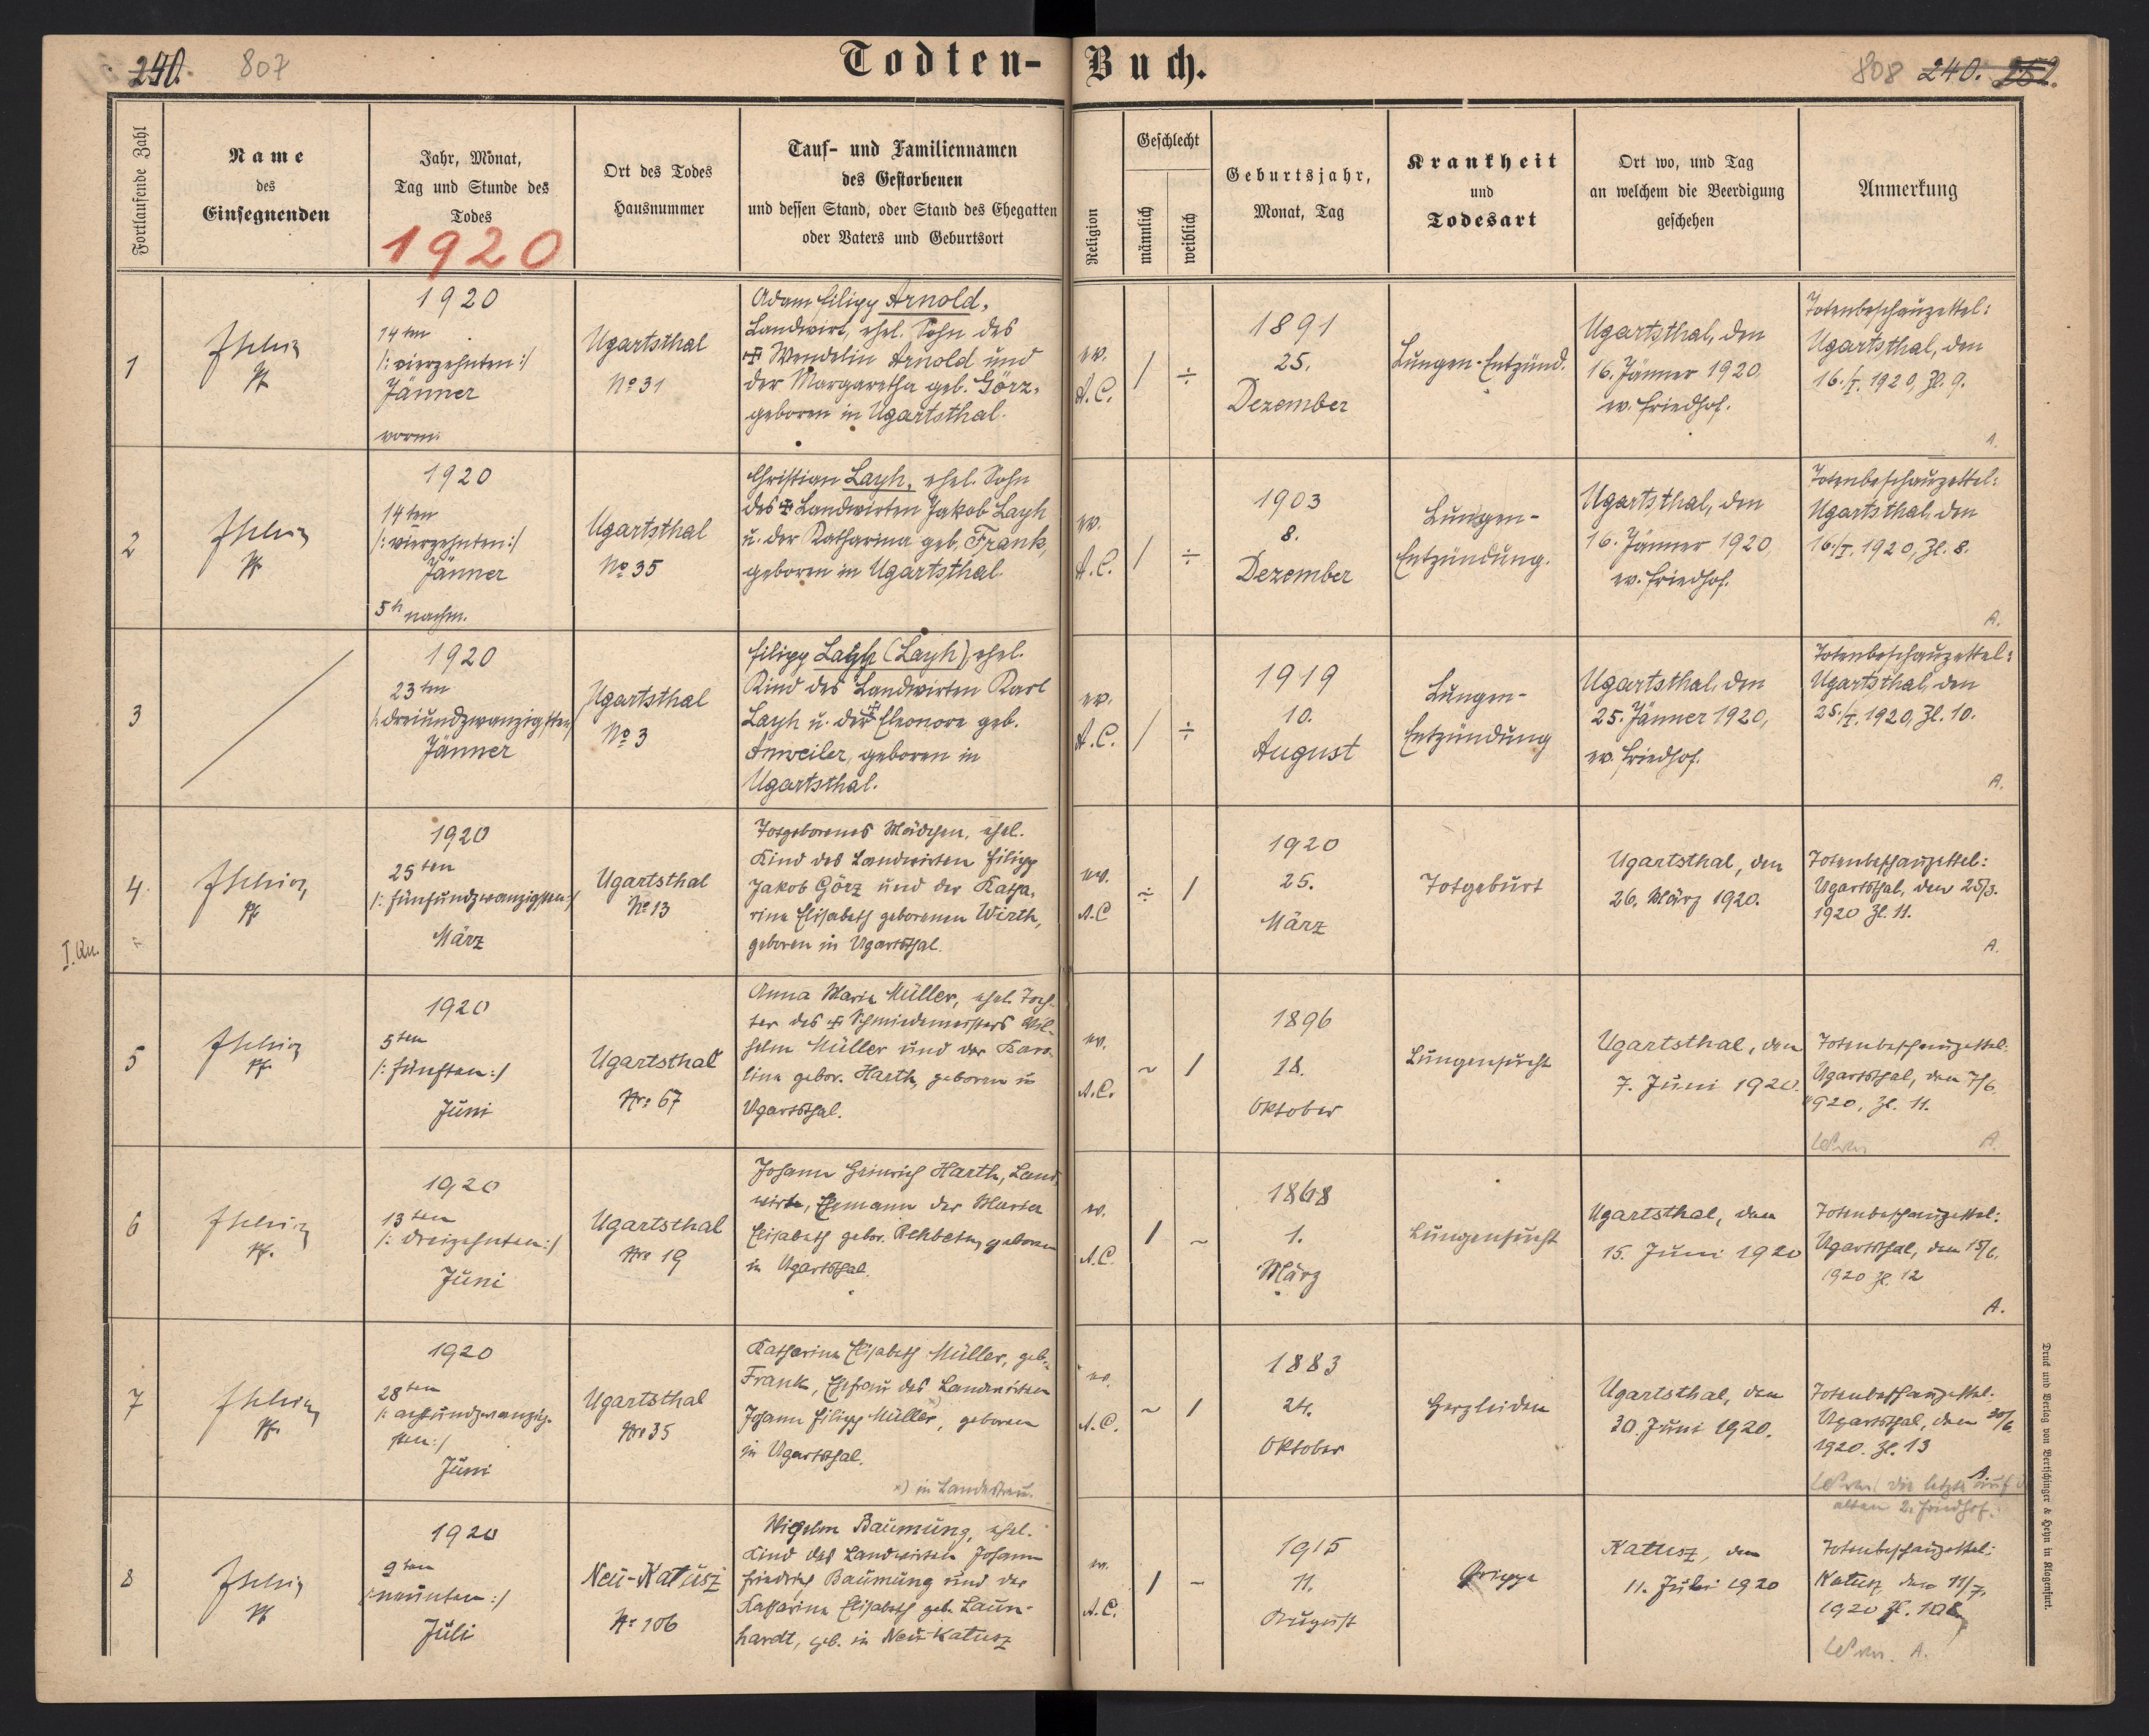 240. 807
Todten-Buch.
808 240. 252.
Fortlaufende Zahl
Name
des
Einsegnenden
Jahr, Monat,
Tag und Stunde des
Todes
1920
Ort des Todes
Hausnummer
Tauf- und Familiennamen
des Gestorbenen
und dessen Stand, oder Stand des Ehegatten
oder Vaters und Geburtsort
Religion
Geschlecht
männlich
weiblich
Geburtsjahr,
Monat, Tag
Krankheit
und
Todesart
Ort wo, und Tag
an welchem die Beerdigung
geschehen
Anmerkung
1
Pf.
1920
14ten
/: vierzehnten :/
Jänner
vorm.
Ugartsthal
No 31
Adam Filipp Arnold,
Landwirt, ehel. Sohn des
✠ Wendelin Arnold und
der Margaretha geb. Görz,
geboren in Ugartsthal.
ev.
A.C.
/ ÷
1891
25.
Dezember
Lungen-Entzünd.
Ugartsthal, den
16. Jänner 1920,
ev. Friedhof.
Totenbeschauzettel:
Ugartsthal, den
16./I. 1920, Zl. 9.
A.
2
Pf.
1920
14ten
/: vierzehnten :/
Jänner
5h nachm.
Ugartsthal
No 35
Christian Layh, ehel. Sohn
des ✠ Landwirten Jakob Layh
u. der Katharina geb. Frank,
geboren in Ugartsthal.
ev.
A.C.
/ ÷
1903
8.
Dezember
Lungen-
Entzündung.
Ugartsthal, den
16. Jänner 1920,
ev. Friedhof.
Totenbeschauzettel:
Ugartsthal, den
16./I. 1920, Zl. 8.
A.
3
1920
23ten
/: dreiundzwanzigsten :/
Jänner
Ugartsthal
No 3
Filipp Layh (Layh), ehel.
Kind des Landwirten Karl
Layh u. der ✠ Eleonore geb.
Anweiler, geboren in
Ugartsthal.
ev.
A.C.
/ ÷
1919
10.
August
Lungen-
Entzündung
Ugartsthal, den
25. Jänner 1920,
ev. Friedhof.
Totenbeschauzettel:
Ugartsthal, den
25./I. 1920, Zl. 10.
A.
4.
Pf.
I. Qu.
1920
25ten
/: fünfundzwanzigsten :/
März
Ugartsthal
No 13
Totgeborenes Mädchen, ehel.
Kind des Landwirten Filipp
Jakob Görz und der Katha-
rina Elisabeth geborenen Wirth,
geboren in Ugartsthal.
ev.
A.C.
÷ /
1920
25.
März
Totgeburt
Ugartsthal, den
26. März 1920.
Totenbeschauzettel:
Ugartsthal, den 25/3.
1920 Zl. 11.
A.
5
Pf.
1920
5ten
/: fünften :/
Juni
Ugartsthal
Nr: 67
Anna Maria Müller, ehel. Toch-
ter des ✠ Schmiedemeisters Wil-
helm Müller und der Karo-
lina gebor. Harth, geboren in
Ugartsthal.
ev.
A.C.
~ /
1896
18.
Oktober
Lungensucht
Ugartsthal, den
7. Juni 1920.
Totenbeschauzettel:
Ugartsthal, den 7/6.
1920, Zl. 11.
A.
6
Pf.
1920
13ten
/: dreizehnten :/
Juni
Ugartsthal
Nro 19
Johann Heinrich Harth, Land-
wirt, Ehemann der Maria
Elisabeth gebor. Rehbein, geboren
in Ugartsthal.
ev.
A.C.
/ ~
1868
1.
März
Lungensucht
Ugartsthal, den
15. Juni 1920
Totenbeschauzettel:
Ugartsthal, den 15/6.
1920 Zl. 12
A.
7
Pf.
1920
28ten
/: achtundzwanzig-
sten :/
Juni
Ugartsthal
Nro 35
Katharina Elisabeth Müller, geb.
Frank, Ehefrau des Landwirten
Johann Filipp Müller x), geboren
in Ugartsthal.
x) in Landestreu.
ev.
A.C.
~ /
1883
24.
Oktober
Herzleiden
Ugartsthal, den
30. Juni 1920.
Totenbeschauzettel.
Ugartsthal, den 30/6
1920. Zl. 13
A.
die letzte auf
alten 2. Friedhof.
8
Pf.
1920
9ten
/: neunten :/
Juli
Neu-Katusz
Nr 106
Wilhelm Baumung, ehel.
Kind des Landwirten Johann
Friedrich Baumung und der
Katharina Elisabeth geb. Laun-
hardt, geb. in Neu-Katusz
ev.
A.C.
/ ~
1915
11.
August
Grippe
Katusz, den
11. Juli 1920
Totenbeschauzettel:
Katusz, den 11/7.
1920 Zl.
A.
Druck und Verlag von Bertschinger & Heyn in Klagenfurt.